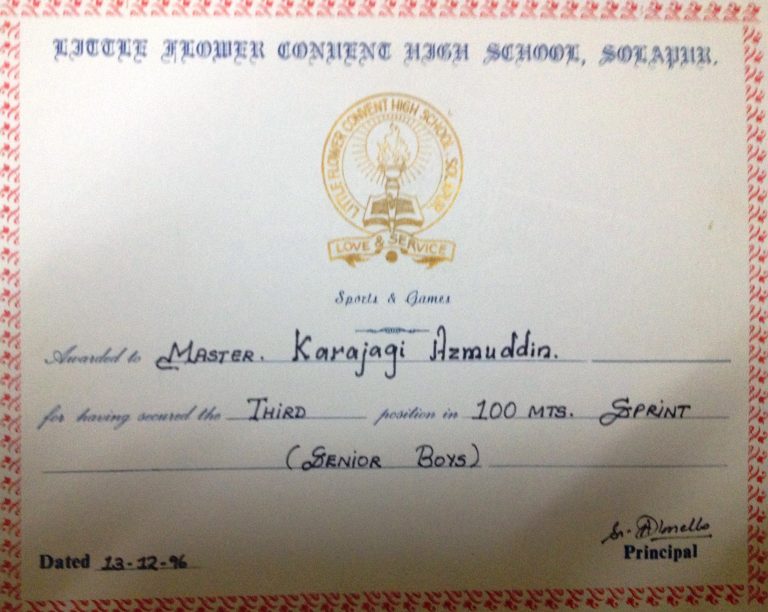 LITTLE FLOWER CONVENT HIGH SCHOOL, SOLAPUR.
LITTLE FLOWER CONVENT HIGH SCHOOL · SOLAPUR
LOVE & SERVICE
Sports & Games
Awarded to MASTER. Karajagi Azmuddin.
for having secured the THIRD position in 100 MTS. SPRINT
(SENIOR BOYS)
Sr.
Dated 13-12-96
Principal